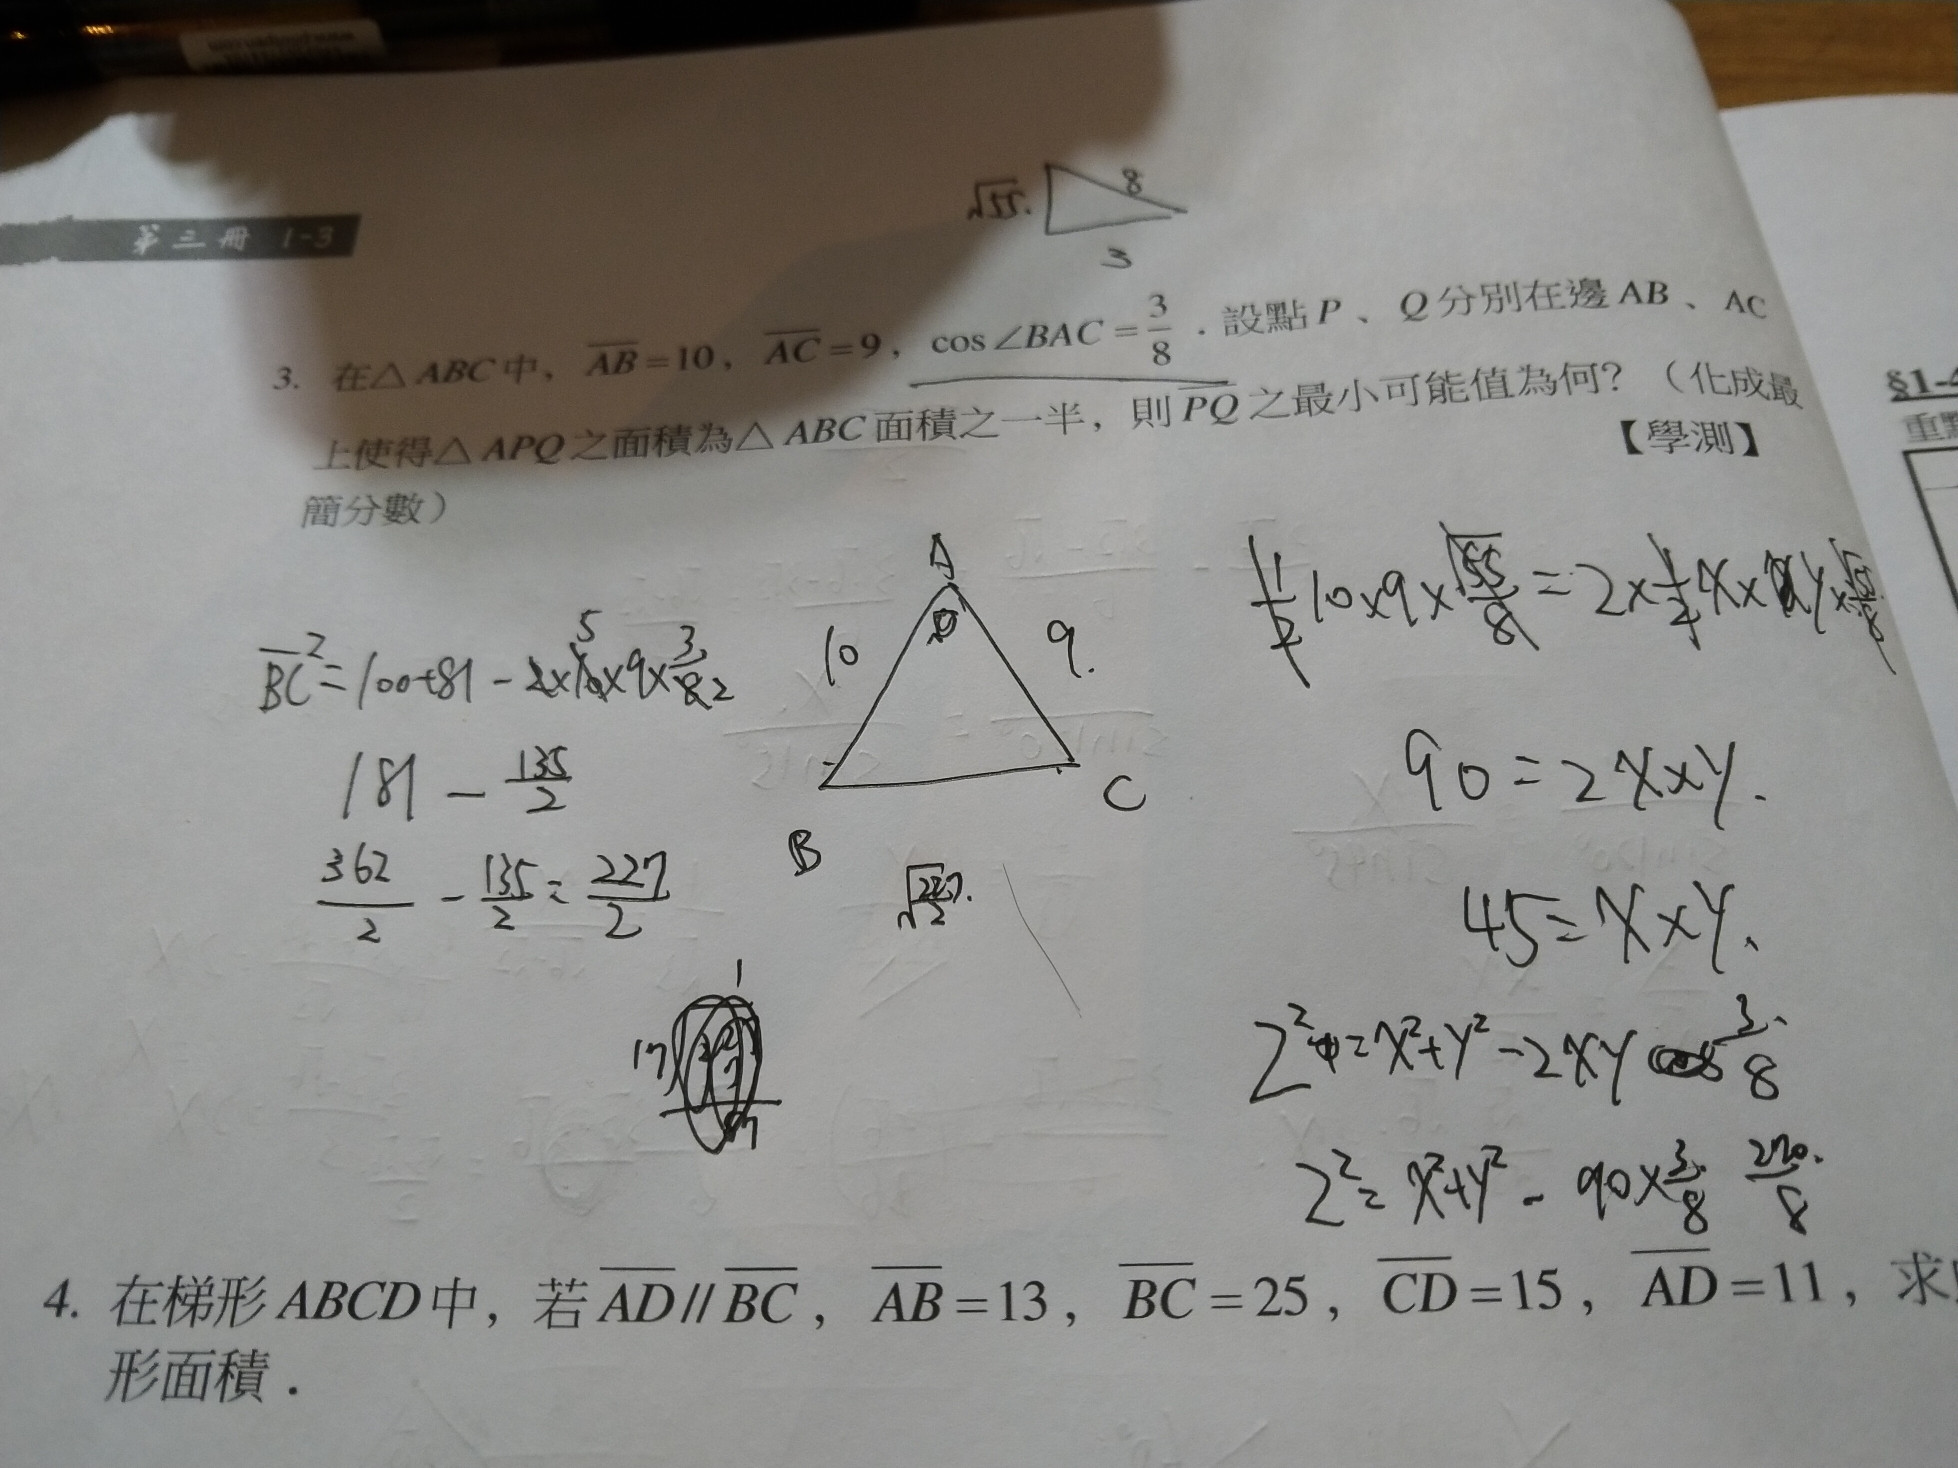 第三冊 1-3
√55.
8
3
3. 在△ABC中，AB=10，AC=9，cos∠BAC=3/8．設點P、Q分別在邊AB、AC
上使得△APQ之面積為△ABC面積之一半，則PQ之最小可能值為何？（化成最
簡分數）
【學測】
§1-4
重
A
10
9.
B
C
BC²=100+81-2×10×9×3/8
5
2
181-135/2
362/2-135/2=227/2
√227/2.
1/2 10×9×√55/8=2×1/2 X×Y×√55/8
90=2X×Y.
45=X×Y.
Z²=X²+Y²-2XY 3/8
Z²=X²+Y²-90×3/8 270/8
1
17
4. 在梯形ABCD中，若AD//BC，AB=13，BC=25，CD=15，AD=11，求
形面積．